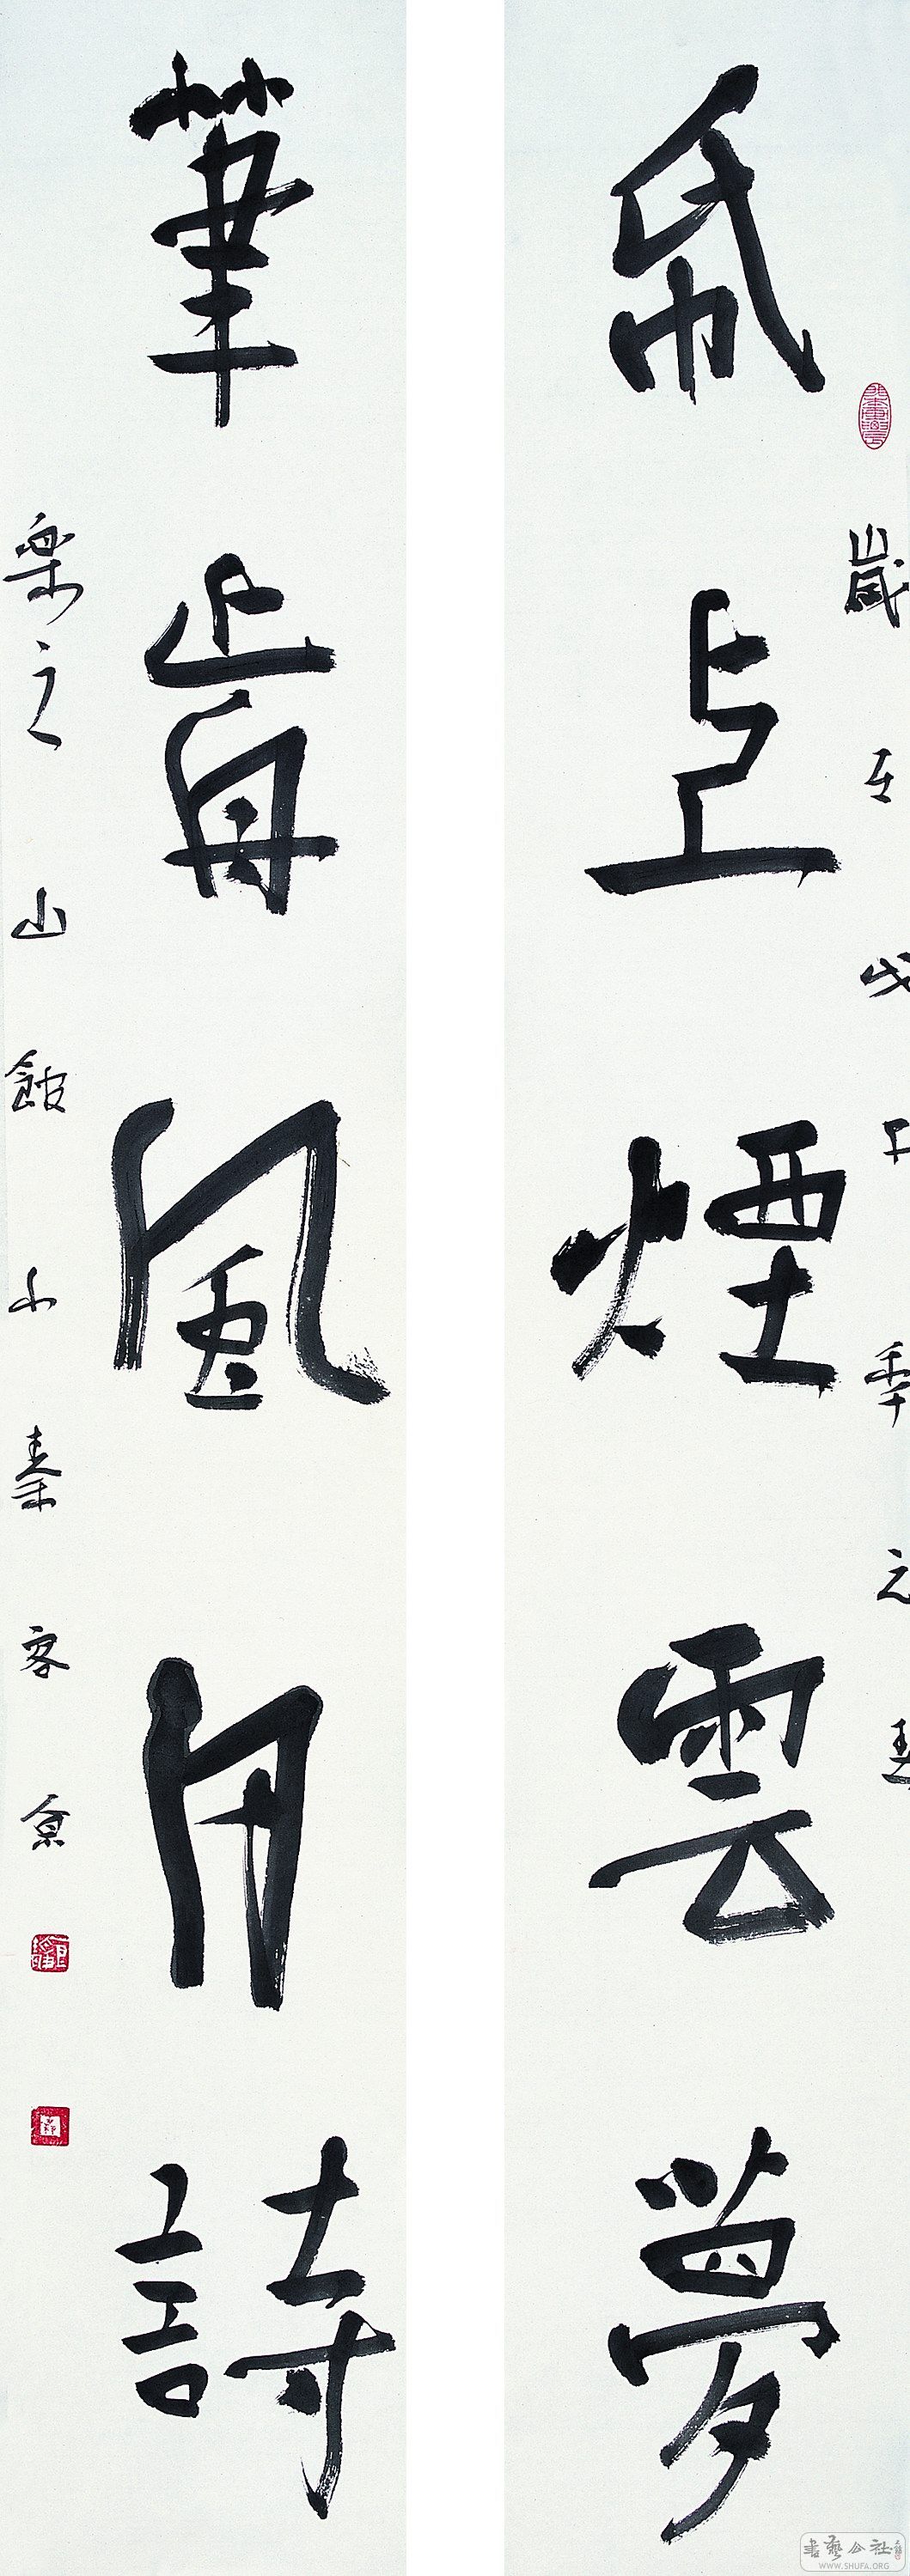 歲在戊子季元
帋上煙雲夢
筆歬風月詩
樂之山館小秦客京
書藝公社
WWW.SHUFA.ORG